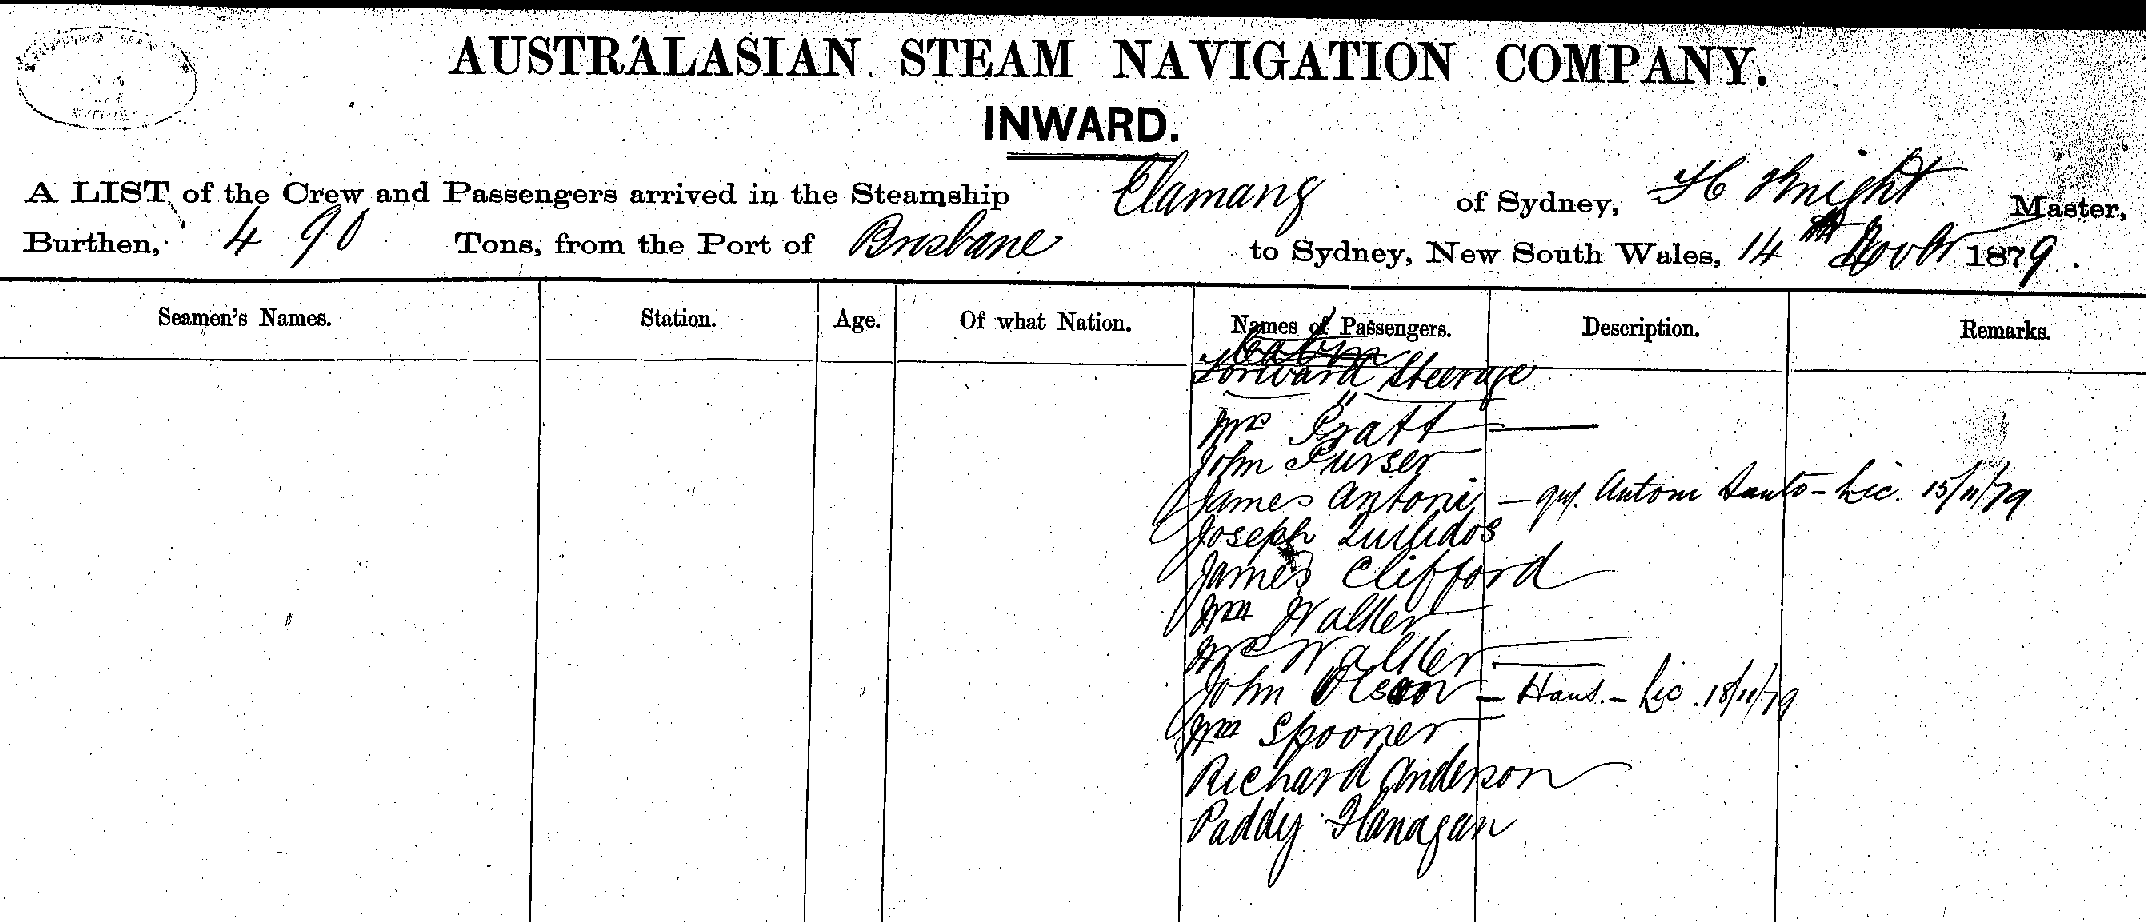 AUSTRALASIAN STEAM NAVIGATION COMPANY.
INWARD.
A LIST of the Crew and Passengers arrived in the Steamship Elamang of Sydney, H Knight Master,
Burthen, 490 Tons, from the Port of Brisbane to Sydney, New South Wales, 14th Novbr 1879.
Seamen's Names. Station. Age. Of what Nation. Names of Passengers. Description. Remarks.
Cabin
Forward Steerage
Mrs Pratt
John Purser
James Antoni - Antoni Santo - Lic. 15/11/79
Joseph
James Clifford
Wm Walker
Mrs Walker
John Olsson - Hans. - Lic. 18/11/79
Wm Spooner
Richard Anderson
Paddy Flanagan